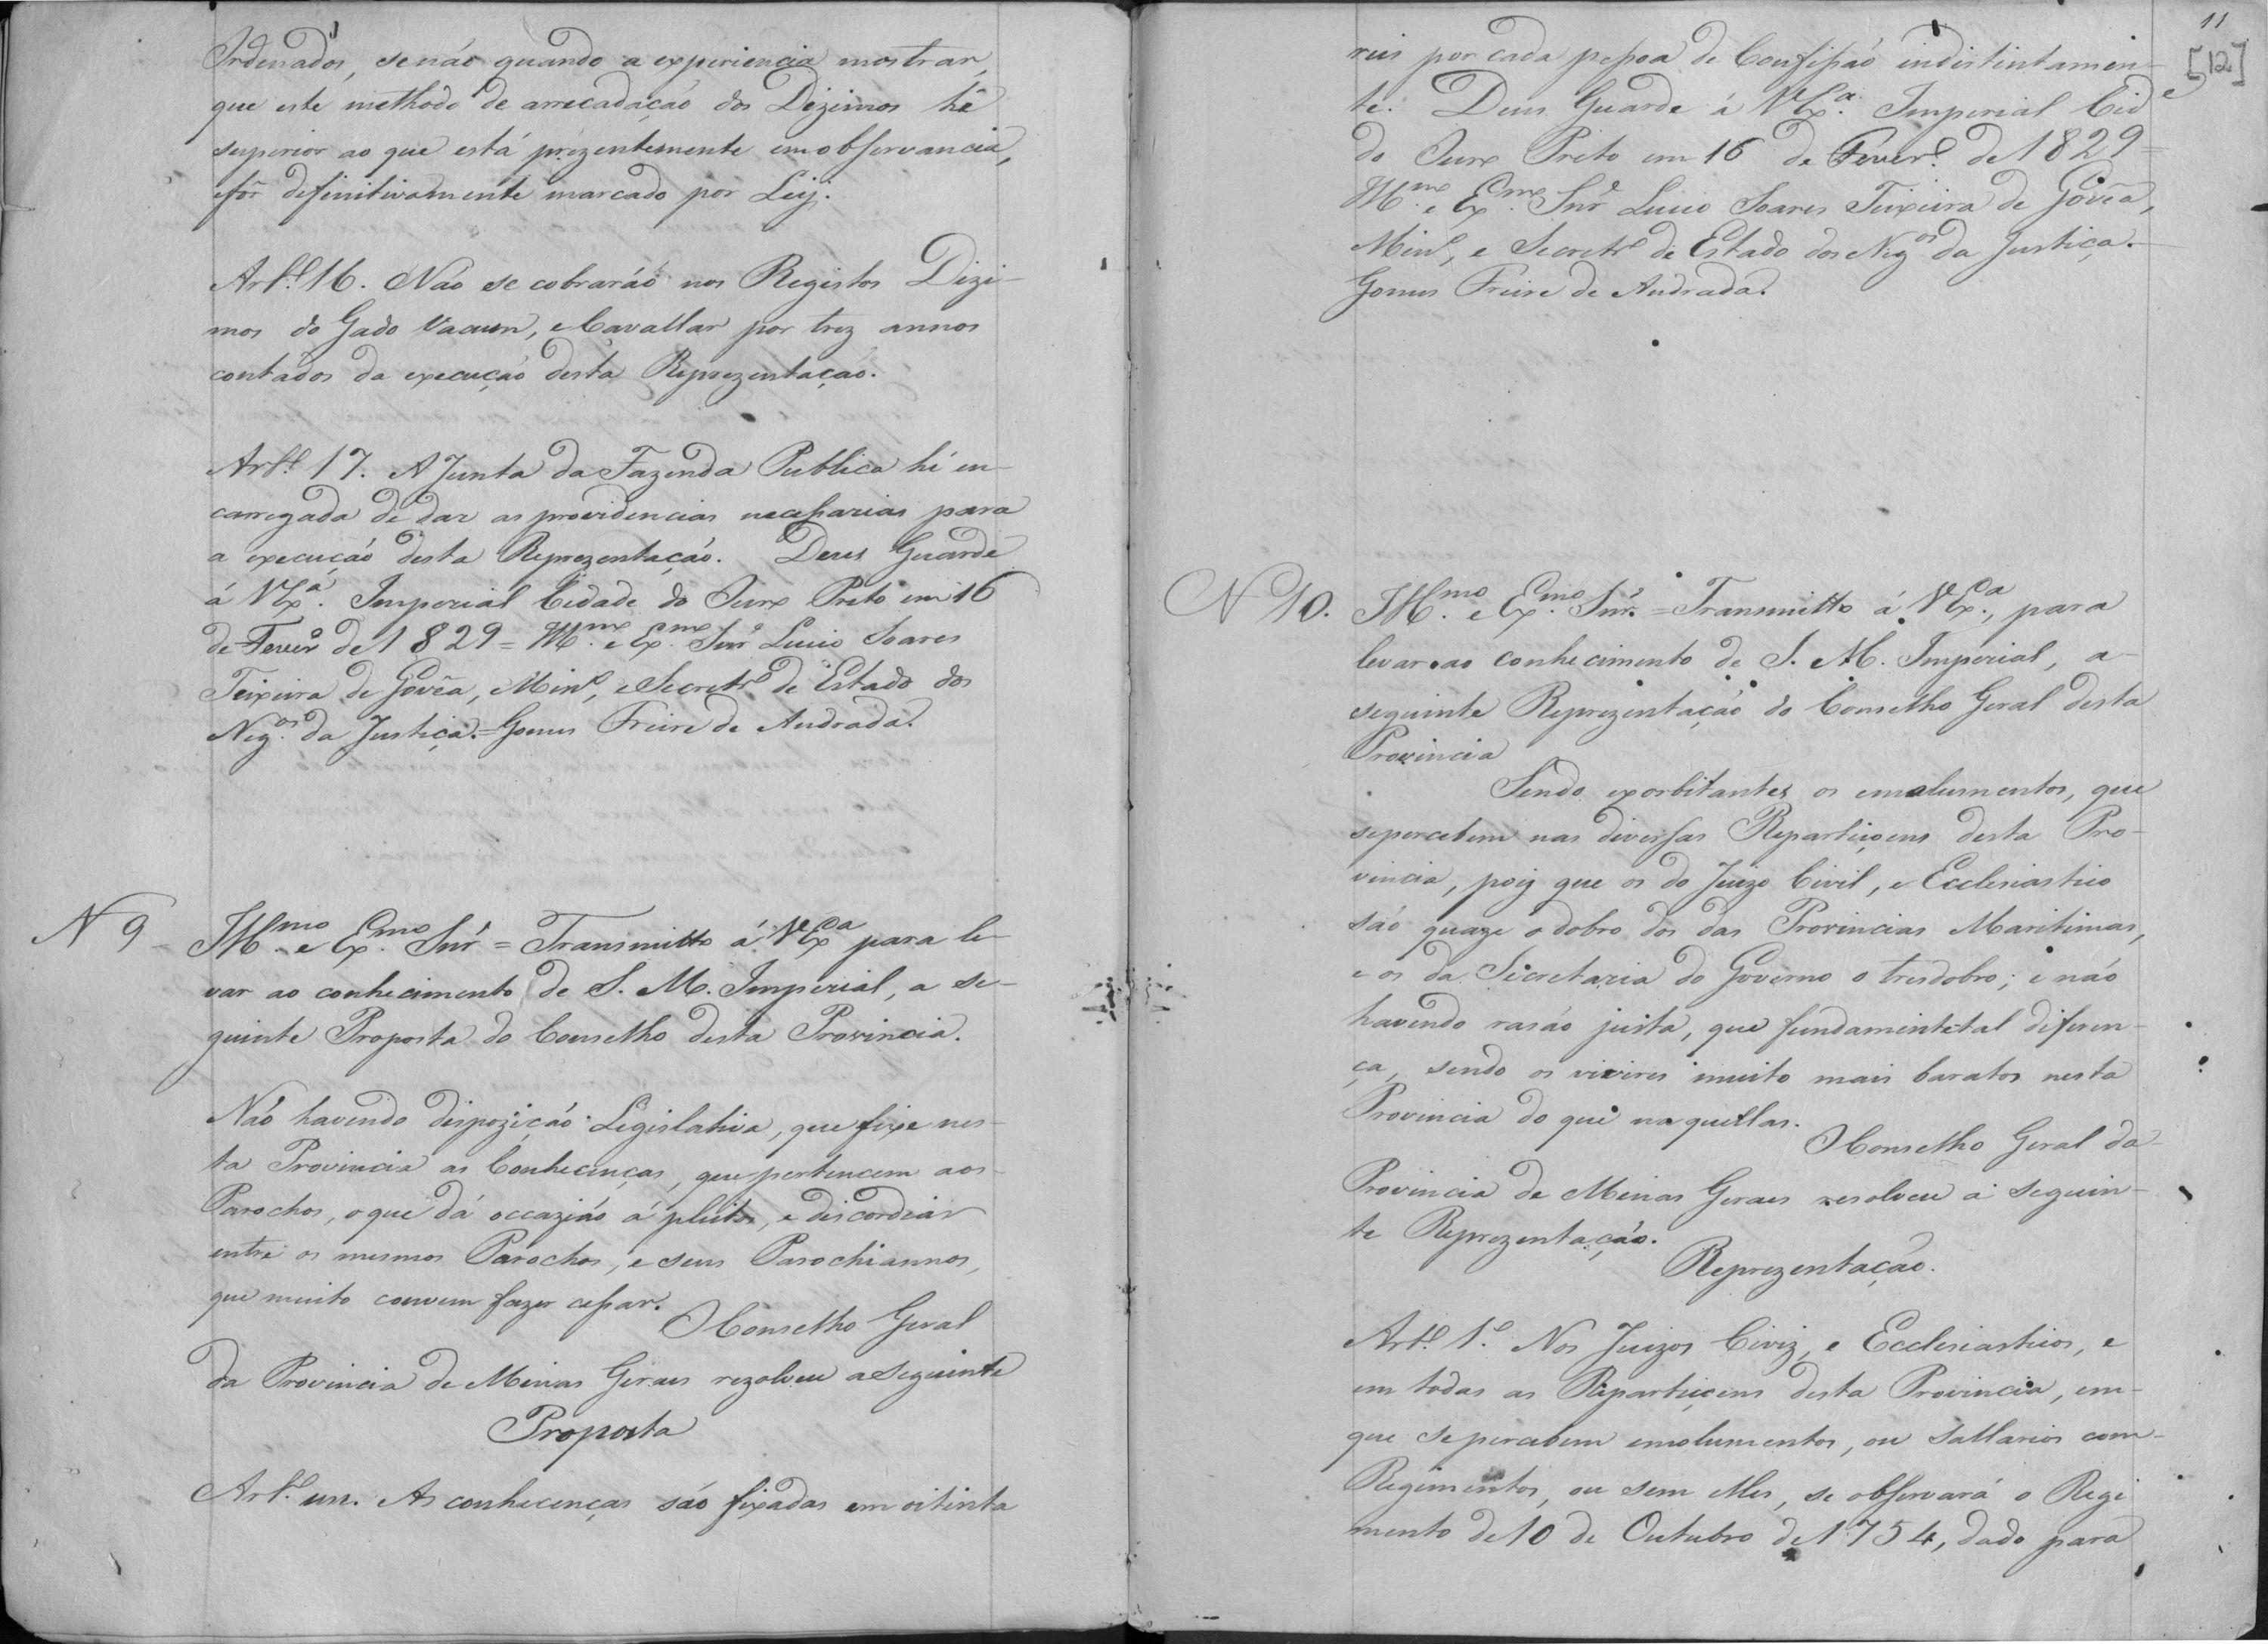 Ordenados, senáo quando a experiencia mostrar,
que este methodo de arrecadaçáo dos Dizimos hé
superior ao que está prezentemente em observancia,
e fôr definitivamente marcado por Ley.
Art.º 16. Náo se cobraráõ nos Registos Dizi-
mos do Gado Vacum, e Cavallar por trez annos
contados da execuçáo desta Reprezentaçáo.
Art.º 17. A Junta da Fazenda Publica hé en-
carregada de dar as providencias necessarias para
a execuçáo desta Reprezentaçáo. Deus Guarde
á V Ex.ª Imperial Cidade do Ouro Preto em 16
de Fever.º de 1829 = Ill.mo e Ex.mo Snr.' Lucio Soares
Teixeira de Govêa, Min.º, e Secretr.º de Estado dos
Neg.os da Justiça. = Gomes Freire de Andrada.
N 9 - Ill.mo e Ex.mo Snr' = Transmitto á V Ex.ª para le-
var ao conhecimento de S. M. Imperial, a se-
guinte Proposta do Conselho desta Provincia.
Náo havendo dispoziçáo Legislativa, que fixe nes-
ta Provincia as Conhecenças, que pertencem aos
Parochos, o que dá occaziáo á pleitos, e discordias
entre os mesmos Parochos, e seus Parochiannos,
que muito convem fazer cessar.
O Conselho Geral
da Provincia de Minas Geraes rezolveu a seguinte
Proposta
Art.º un. As conhecenças sáo fixadas em oitinta
11
[12]
reis por cada pessoa de Confissáõ indistintamen-
te. Deus Guarde á V Ex.ª Imperial Cid.e
do Ouro Preto em 16 de Fever.º de 1829 =
Ill.mo e Ex.mo Snr.' Lucio Soares Teixeira de Govêa,
Min.º, e Secretr.º de Estado dos Neg.os da Justiça. -
Gomes Freire de Andrada.
N 10. Ill.mo e Ex.mo Snr.' = Transmitto á V Ex.ª, para
levar ao conhecimento de S. M. Imperial, a
seguinte Reprezentaçáo do Conselho Geral desta
Provincia
Sendo exorbitantes os emalumentos, que
se percebem nas diversas Repartiçoens desta Pro-
vincia, poiz que os do Juizo Civil, e Ecclesiastico
sáo quaze o dobro dos das Provincias Maritimas,
e os da Secretaria do Governo o tresdobro; e náo
havendo rasáo justa, que fundamente tal diferen-
ça, sendo os viveres muito mais baratos nesta
Provincia do que naquellas.
O Conselho Geral da
Provincia de Minas Geraes resolveu a seguin-
te Reprezentaçáo.
Reprezentaçáo.
Art.º 1.º Nos Juizos Civiz, e Ecclesiasticos, e
em todas as Repartiçoens desta Provincia, em-
que se percebem emolumentos, ou Sallarios com-
Regimentos, ou sem elles, se observará o Regi
mento de 10 de Outubro de 1754, dado para